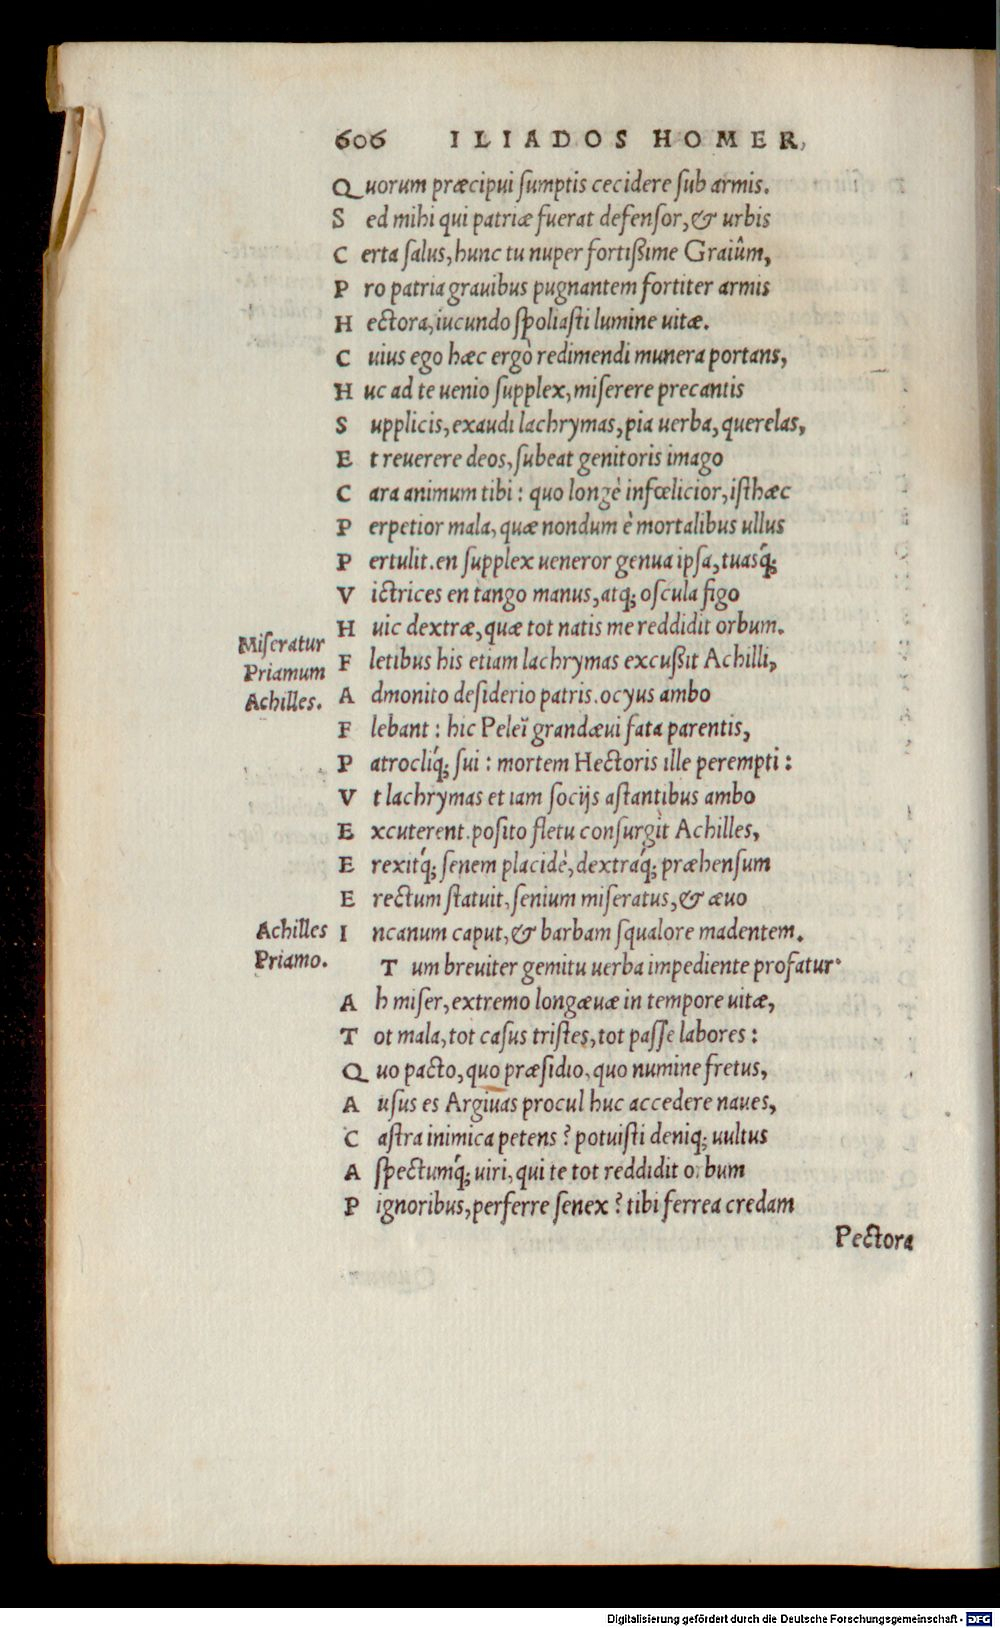 606 ILIADOS HOMER,
Quorum præcipui ſumptis cecidere ſub armis.
Sed mihi qui patriæ fuerat defenſor, & urbis
Certa ſalus, hunc tu nuper fortißime Graiûm,
Pro patria grauibus pugnantem fortiter armis
Hectora, iucundo ſpoliaſti lumine uitæ.
Cuius ego hæc ergò redimendi munera portans,
Huc ad te uenio ſupplex, miſerere precantis
Supplicis, exaudi lachrymas, pia uerba, querelas,
Et reuerere deos, ſubeat genitoris imago
Cara animum tibi: quo longè infœlicior, iſthæc
Perpetior mala, quæ nondum è mortalibus ullus
Pertulit. en ſupplex ueneror genua ipſa, tuasq́;
Victrices en tango manus, atq; oſcula figo
Huic dextræ, quæ tot natis me reddidit orbum.
Miſeratur Priamum Achilles.
Fletibus his etiam lachrymas excußit Achilli,
Admonito deſiderio patris. ocyus ambo
Flebant: hic Peleï grandæui fata parentis,
Patrocliq́; ſui: mortem Hectoris ille perempti:
Vt lachrymas etiam ſocijs aſtantibus ambo
Excuterent. poſito fletu conſurgit Achilles,
Erexitq́; ſenem placidè, dextraq́; præhenſum
Erectum ſtatuit, ſenium miſeratus, & æuo
Incanum caput, & barbam ſqualore madentem.
Achilles Priamo.
Tum breuiter gemitu uerba impediente profatur.
Ah miſer, extremo longæuæ in tempore uitæ,
Tot mala, tot caſus triſtes, tot paſſe labores:
Quo pacto, quo præſidio, quo numine fretus,
Auſus es Argiuas procul huc accedere naues,
Caſtra inimica petens? potuiſti deniq; uultus
Aſpectumq́; uiri, qui te tot reddidit orbum
Pignoribus, perferre ſenex? tibi ferrea credam
Pectora
Digitalisierung gefördert durch die Deutsche Forschungsgemeinschaft - DFG